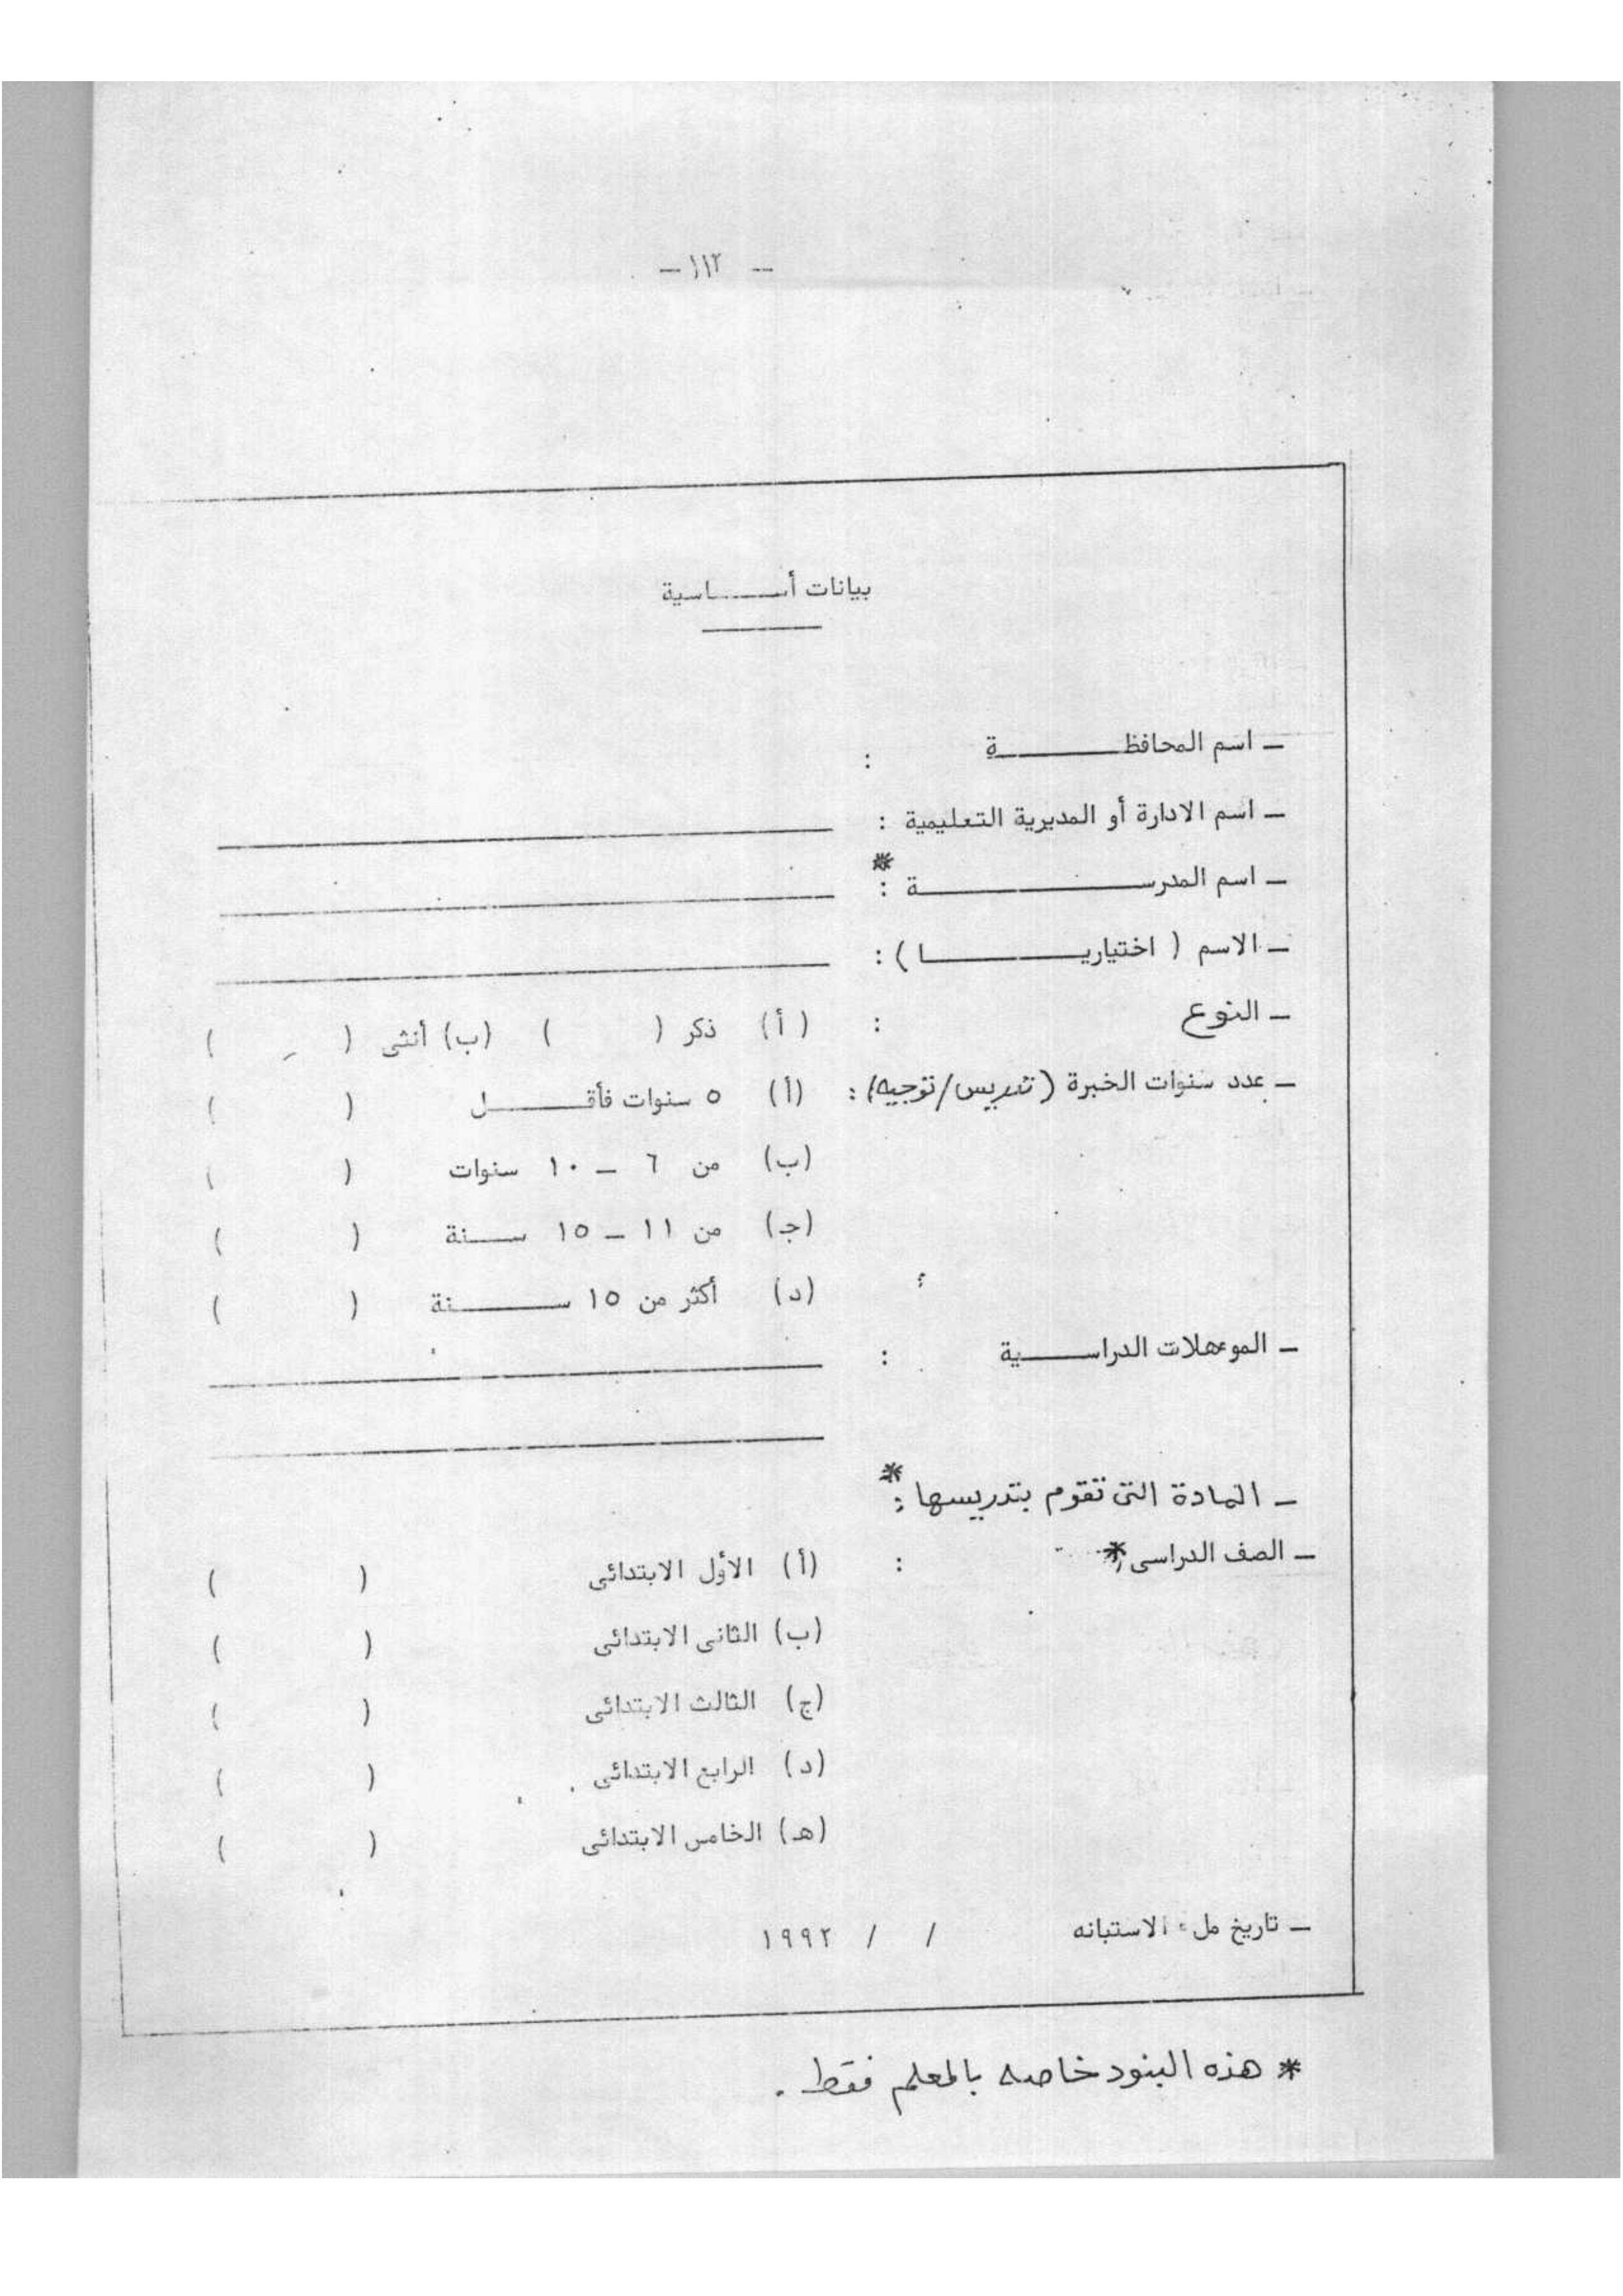 - ١١٢ -
بيانات أساسية
- اسم المحافظة :
- اسم الادارة أو المديرية التعليمية :
- اسم المدرسة * :
- الاسم ( اختياريا ) :
- النوع : (أ) ذكر ( ) (ب) أنثى ( )
- عدد سنوات الخبرة (تدريس/توجيه) : (أ) ٥ سنوات فأقل ( )
(ب) من ٦ - ١٠ سنوات ( )
(جـ) من ١١ - ١٥ سنة ( )
(د) أكثر من ١٥ سنة ( )
- الموءهلات الدراسية :
- المادة التى تقوم بتدريسها * :
- الصف الدراسى * : (أ) الأول الابتدائى ( )
(ب) الثانى الابتدائى ( )
(ج) الثالث الابتدائى ( )
(د) الرابع الابتدائى ( )
(هـ) الخامس الابتدائى ( )
- تاريخ ملء الاستبانه / / ١٩٩٢
* هذه البنود خاصه بالمعلم فقط .